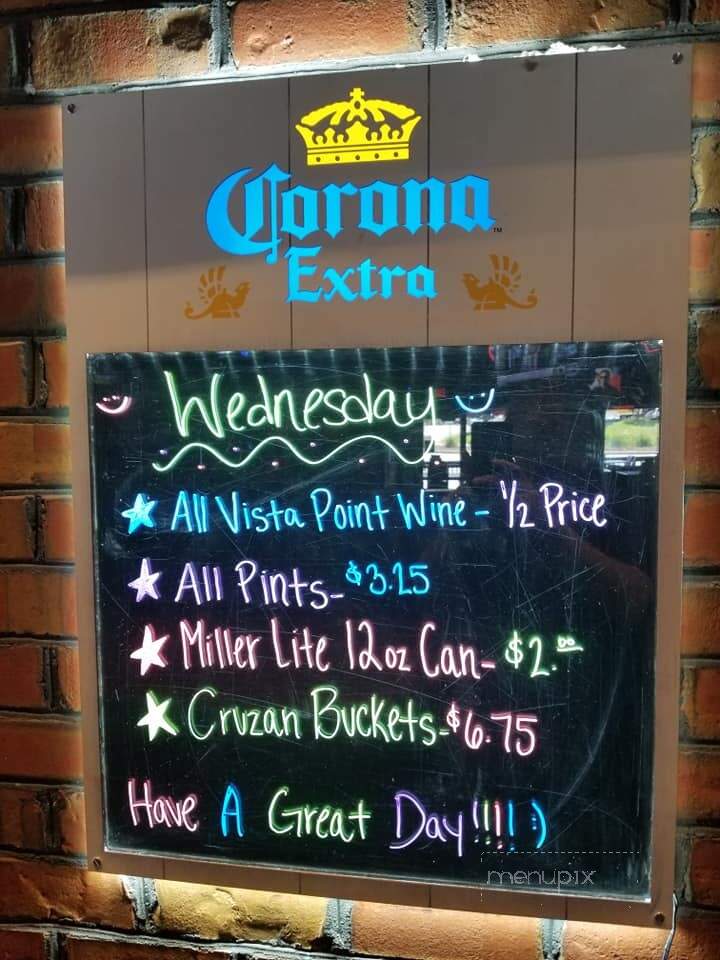 Corona
Extra
TM
Wednesday
All Vista Point Wine - 1/2 Price
All Pints - $3.25
Miller Lite 12oz Can - $2.00
Cruzan Buckets - $6.75
Have A Great Day!!!! :)
menupix